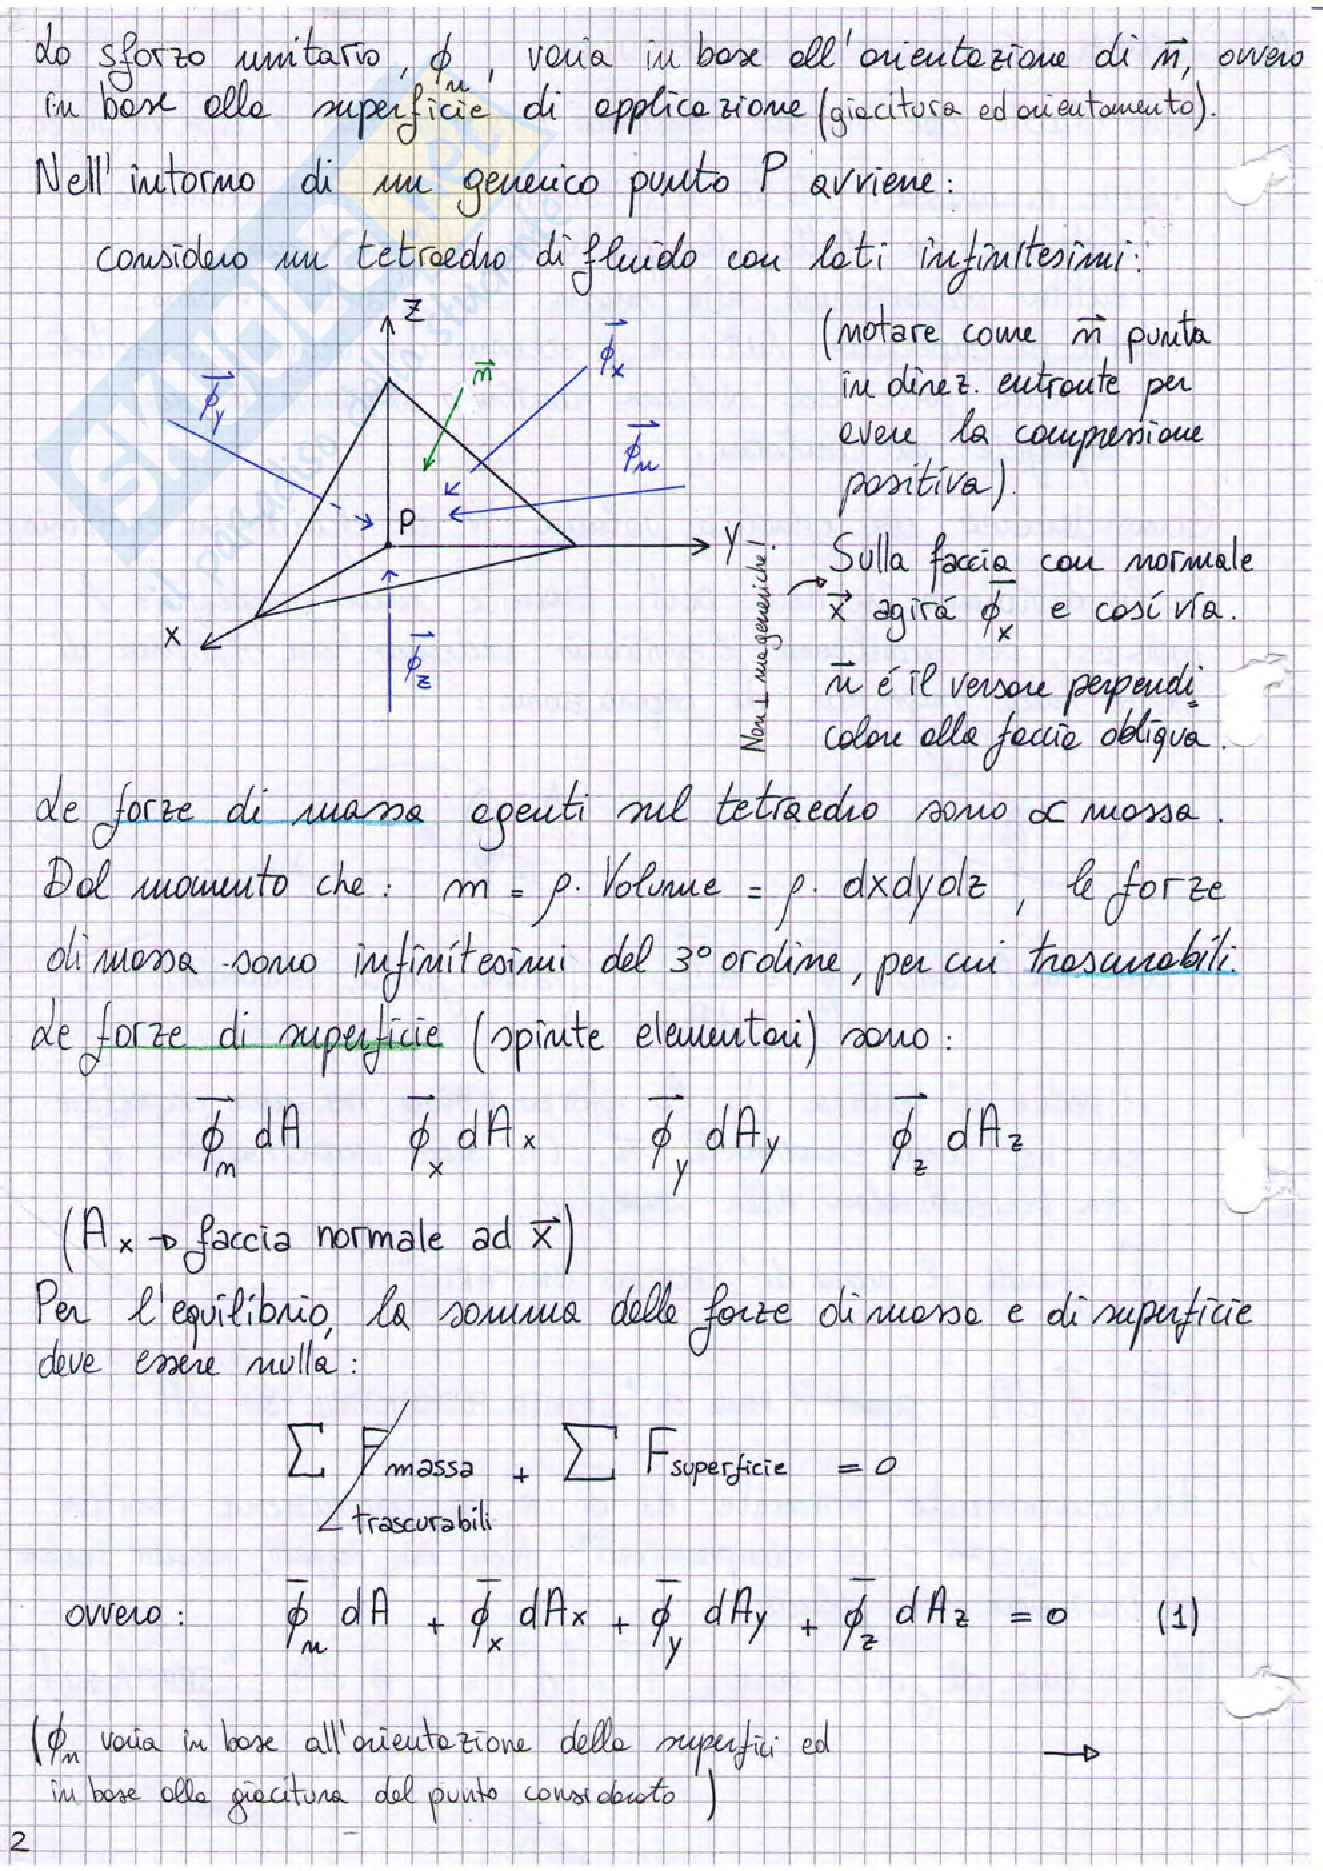 Lo sforzo unitario, ϕn, varia in base all'orientazione di n⃗, ovvero
in base alla superficie di applicazione (giacitura ed orientamento).
Nell'intorno di un generico punto P avviene:
considero un tetraedro di fluido con lati infinitesimi:
Z
ϕ⃗x
n⃗
ϕ⃗y
ϕ⃗n
P
Y
X
ϕ⃗z
(notare come n⃗ punta
in direz. entrante per
avere la compressione
positiva).
Non ⊥ ma generiche!
Sulla faccia con normale
x⃗ agirá ϕ̅x e cosí via.
n⃗ é il versore perpendi
colare alla faccia obliqua.
Le forze di massa agenti sul tetraedro sono ∝ massa.
Dal momento che: m = ρ· Volume = ρ· dxdydz, le forze
di massa sono infinitesimi del 3° ordine, per cui trascurabili.
Le forze di superficie (spinte elementari) sono:
ϕ⃗n dA ϕ⃗x dAx ϕ⃗y dAy ϕ⃗z dAz
(Ax → faccia normale ad x⃗)
Per l'equilibrio, la somma delle forze di massa e di superficie
deve essere nulla:
∑ Fmassa + ∑ Fsuperficie = 0
trascurabili
ovvero: ϕ̅n dA + ϕ̅x dAx + ϕ̅y dAy + ϕ̅z dAz = 0 (1)
(ϕn varia in base all'orientazione della superfici ed →
in base alla giacitura del punto considerato)
2
SKUOLA.net
il paradiso dello studente